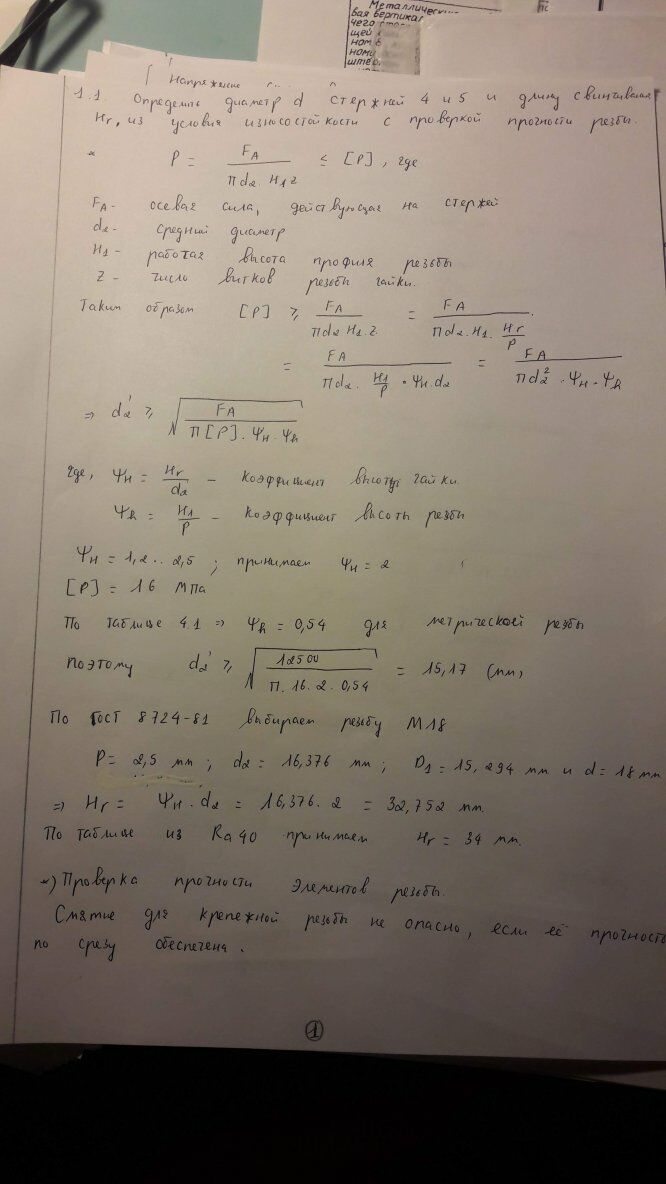 Металличес
вая вертикал
чего
щей
ном
ном
штё
Напряжение
1.1 Определить диаметр d стержней 4 и 5 и длину свинчивания
Hг, из условия износостойкости с проверкой прочности резьбы.
P = FA / (π d2 · H1 z) ≤ [P], где
FA - осевая сила, действующая на стержей
d2 - средний диаметр
H1 - рабогая высота профиля резьбы
Z - число витков резьбы гайки.
Таким образом [P] ≥ FA / (π d2 H1 · z) = FA / (π d2 · H1 · Hг/P)
= FA / (π d2 · H1/P · Ψн · d2) = FA / (π d2² · Ψн · Ψh)
⇒ d2' ≥ √(FA / (π [P] · Ψн · Ψh))
где, Ψн = Hг/d2 - коэффициент высоты гайки.
Ψh = H1/P - коэффициент высоты резьбы
Ψн = 1,2 .. 2,5 ; принимаем Ψн = 2
[P] = 16 МПа
По таблице 4.1 ⇒ Ψh = 0,54 для метрической резьбы
поэтому d2' ≥ √(12500 / (π · 16 · 2 · 0,54)) = 15,17 (мм)
По ГОСТ 8724-81 выбираем резьбу М18
P = 2,5 мм ; d2 = 16,376 мм ; D1 = 15,294 мм и d = 18 мм
⇒ Hг = Ψн · d2 = 16,376 · 2 = 32,752 мм.
По таблице из Ra40 принимаем Hг = 34 мм.
*) Проверка прочности элементов резьбы.
Смятие для крепежной резьбы не опасно, если её прочность
по срезу обеспечена.
1